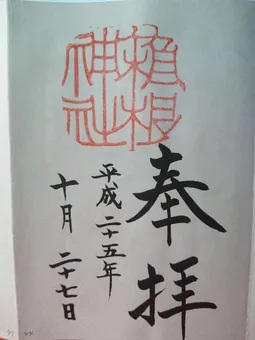 奉拝
神社
平成二十五年
十月二十七日